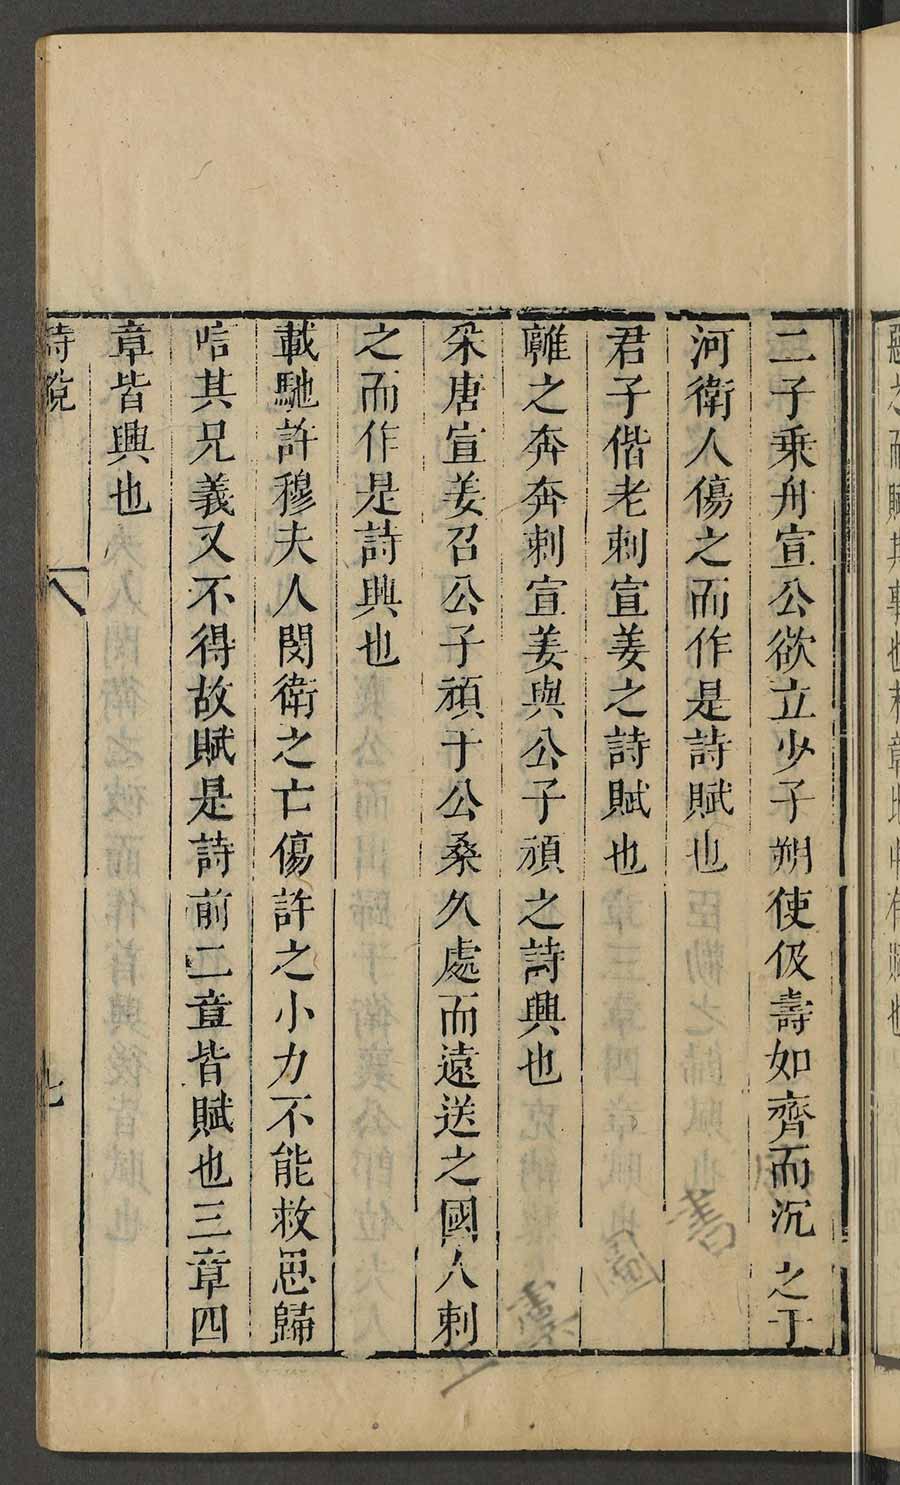 二子乗舟宣公欲立少子朔使伋壽如齊而沉之于
河衛人傷之而作是詩賦也
君子偕老刺宣姜之詩賦也
雝之奔奔刺宣姜與公子頑之詩興也
采唐宣姜召公子頑于公桑久處而遠送之國人刺
之而作是詩興也
載馳許穆夫人閔衛之亡傷許之小力不能救思歸
唁其兄義又不得故賦是詩前二章皆賦也三章四
章皆興也